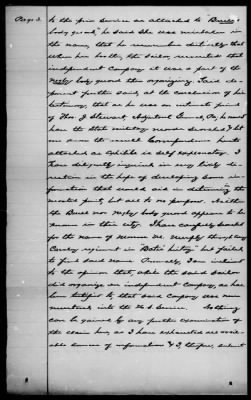 Page 3.
to the prior service as attached to "Buell's
body guard," he said she was mistaken in
the name, that he remembers distinctly that
when her brother, the sailor, recruited that
independent company it was a part of the
body guard then organizing. This de-
ponent further said, at the conclusion of his
testimony, that as he was an intimate friend
of Thos. J. Stewart, Adjutant General, Pa, he would
have the State military records searched & let
me know the result. Correspondence hereto
attached as exhibits is self explanatory. I
have diligently inquired in every likely di-
rection in the hope of developing some in-
formation that would aid in determining the
mooted point, but are to no purpose. Neither
the Buell nor body guard appears to be
known in this city. I have carefully looked
for the name of Murphy through
Cavalry regiment in "Bates' history" but failed
to find said name. Personally, I am inclined
to the opinion that, while the said sailor
did organize an independent company, as has
been testified to, that said company was never
mustered into the U.S. service. Nothing
can be gained by any further examination of
the claim here, as I have exhausted all avail-
able sources of information & I, therefore, submit